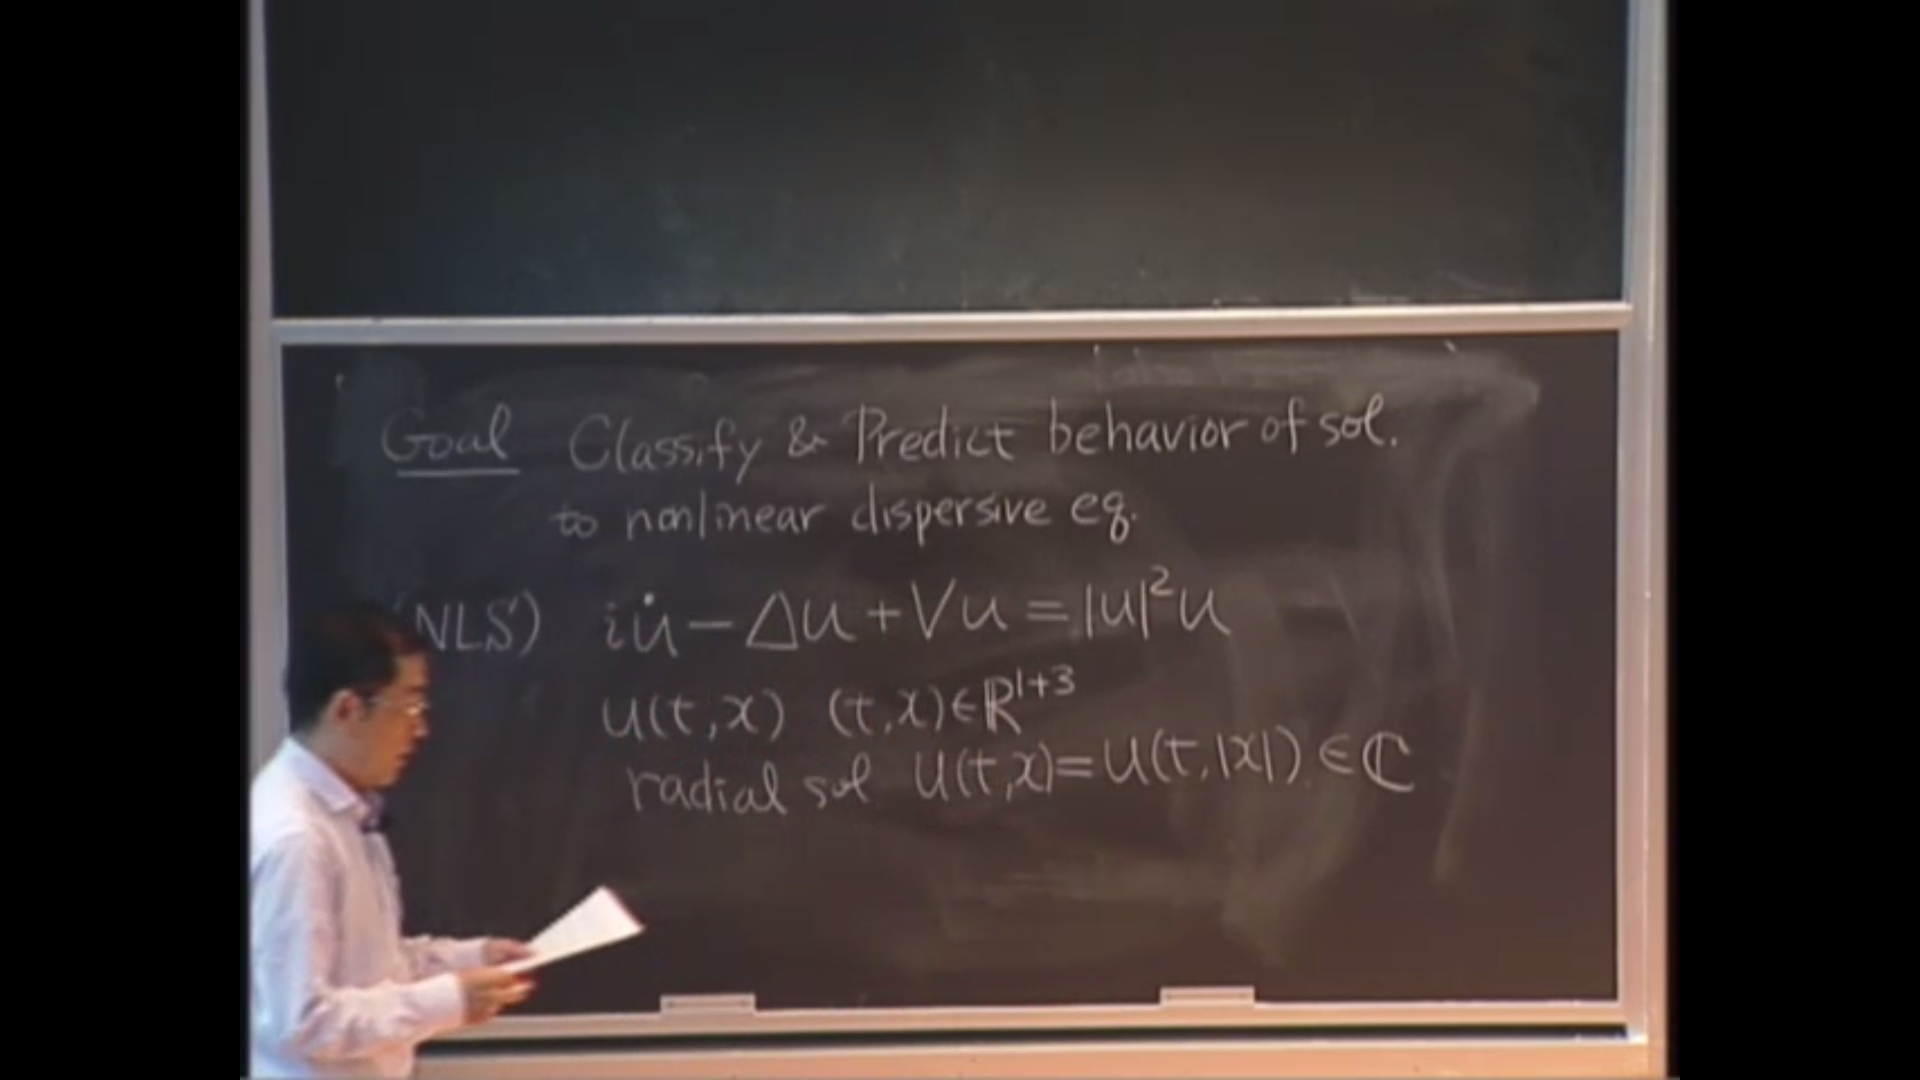 Goal Classify & Predict behavior of sol.
to nonlinear dispersive eq.
(NLS) iu̇ − Δu + Vu = |u|²u
u(t,x) (t,x)∈ℝ¹⁺³
radial sol u(t,x)=u(t,|x|) ∈ ℂ